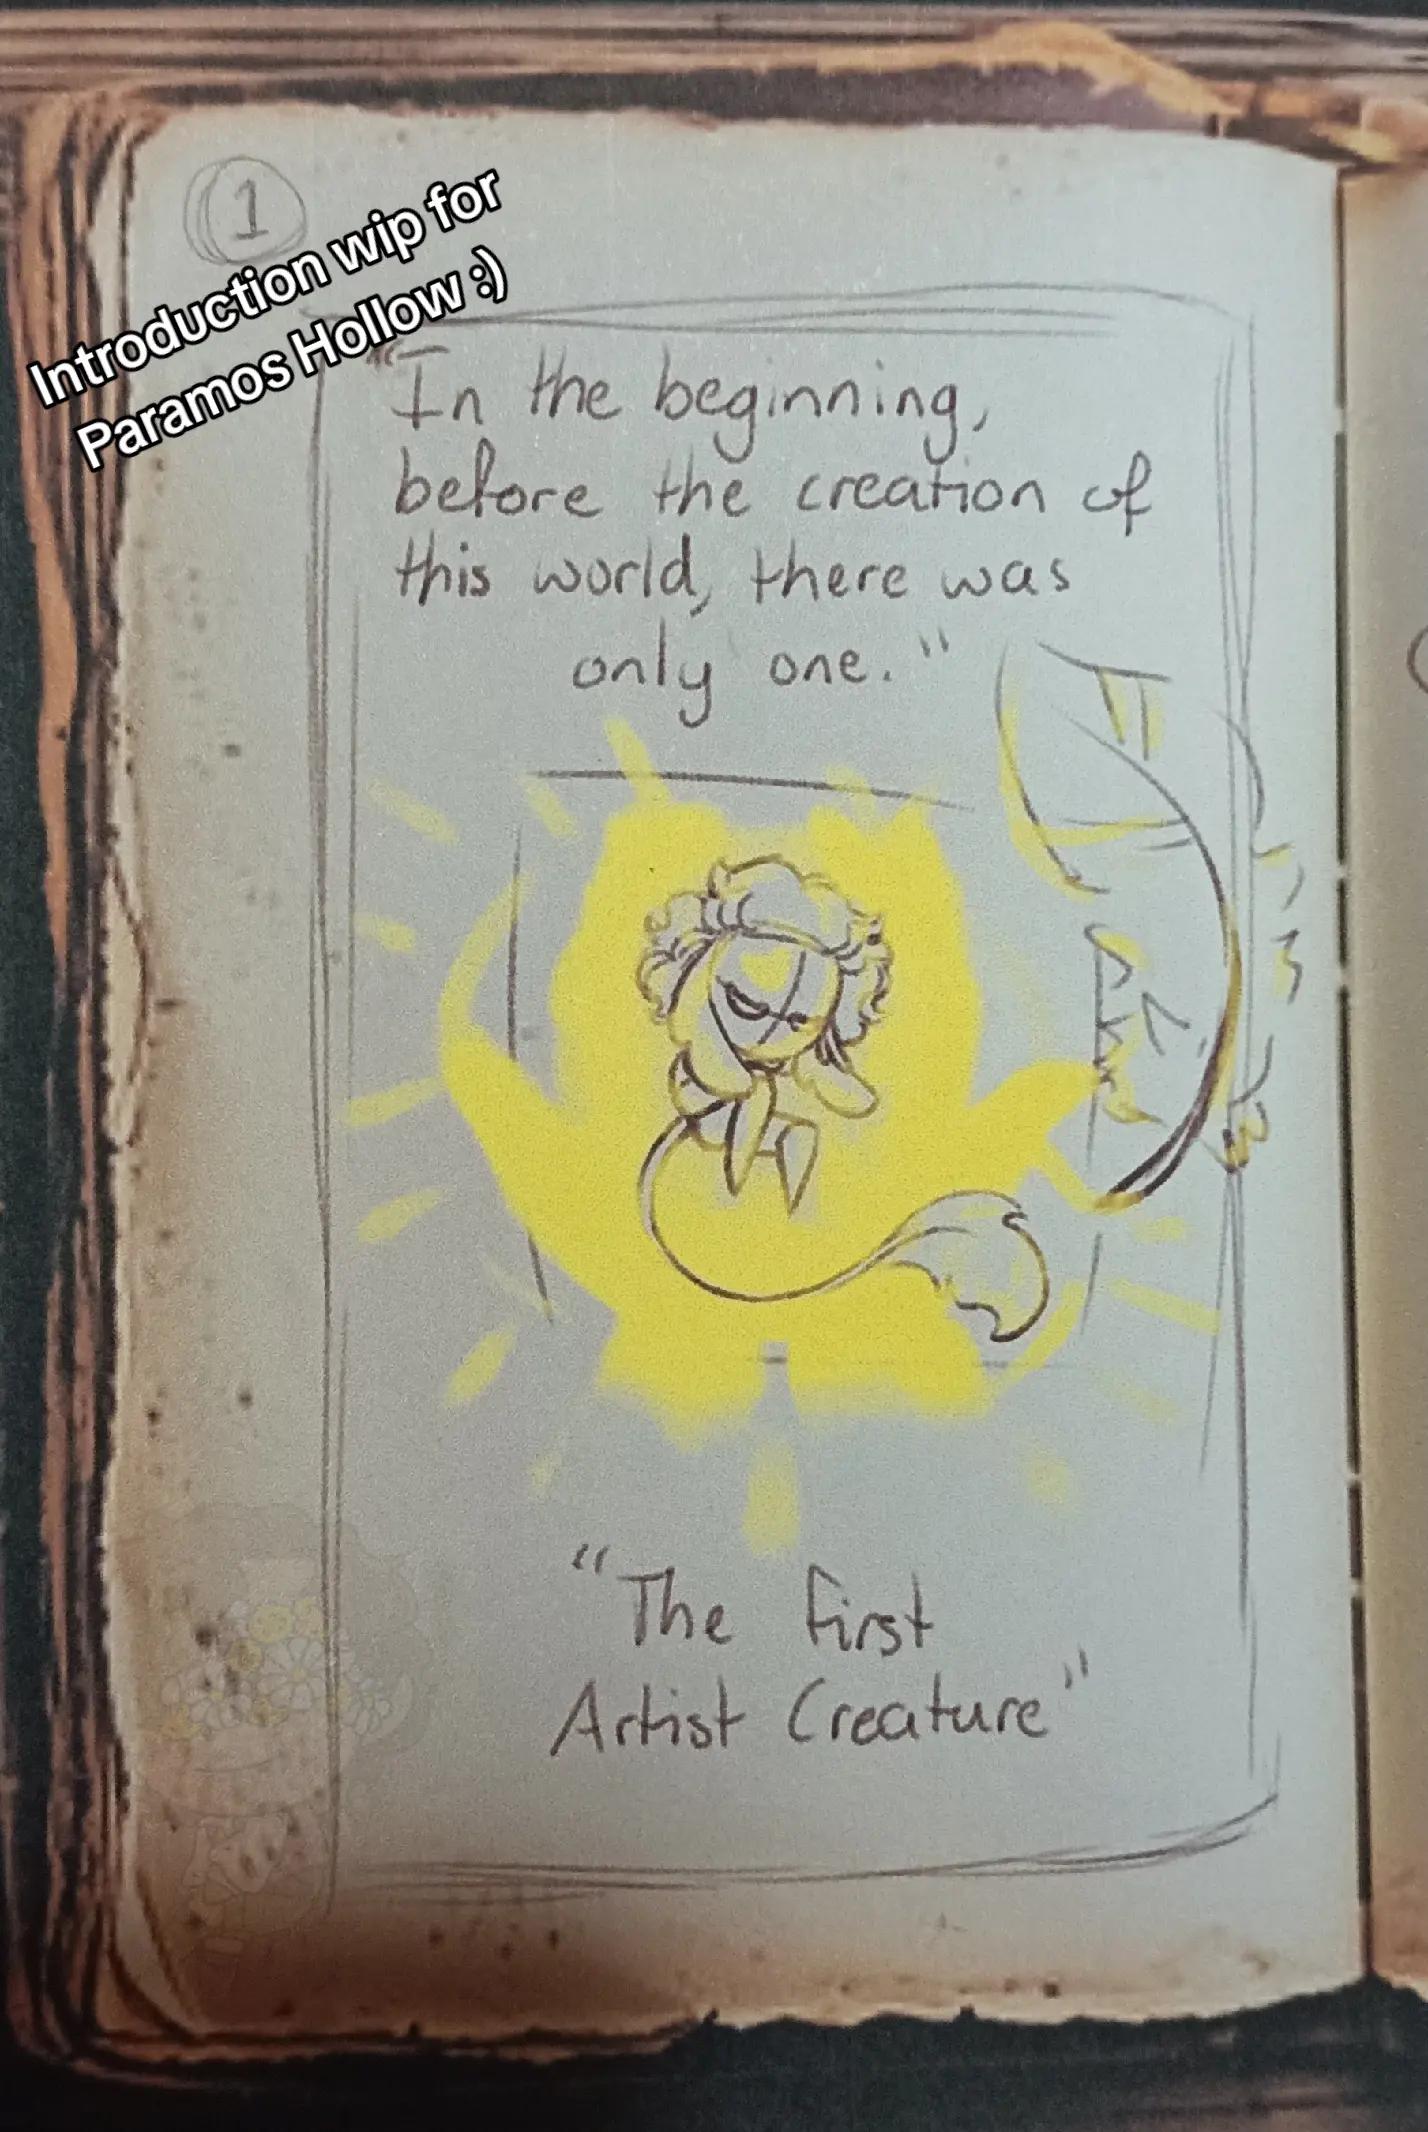 1
Introduction wip for
Paramos Hollow :)
"In the beginning,
before the creation of
this world, there was
only one."
"The first
Artist Creature"